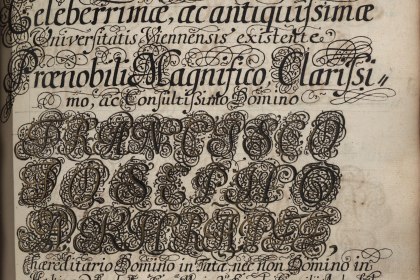 Celeberrimæ, ac antiquissimæ
Universitatis Viennensis existente
Prænobili, Magnifico, Clarissi=
mo, ac Consultissimo Domino
FRANCISCO
IOSEPHO
hæreditario Domino in Tata, nec non Domino in